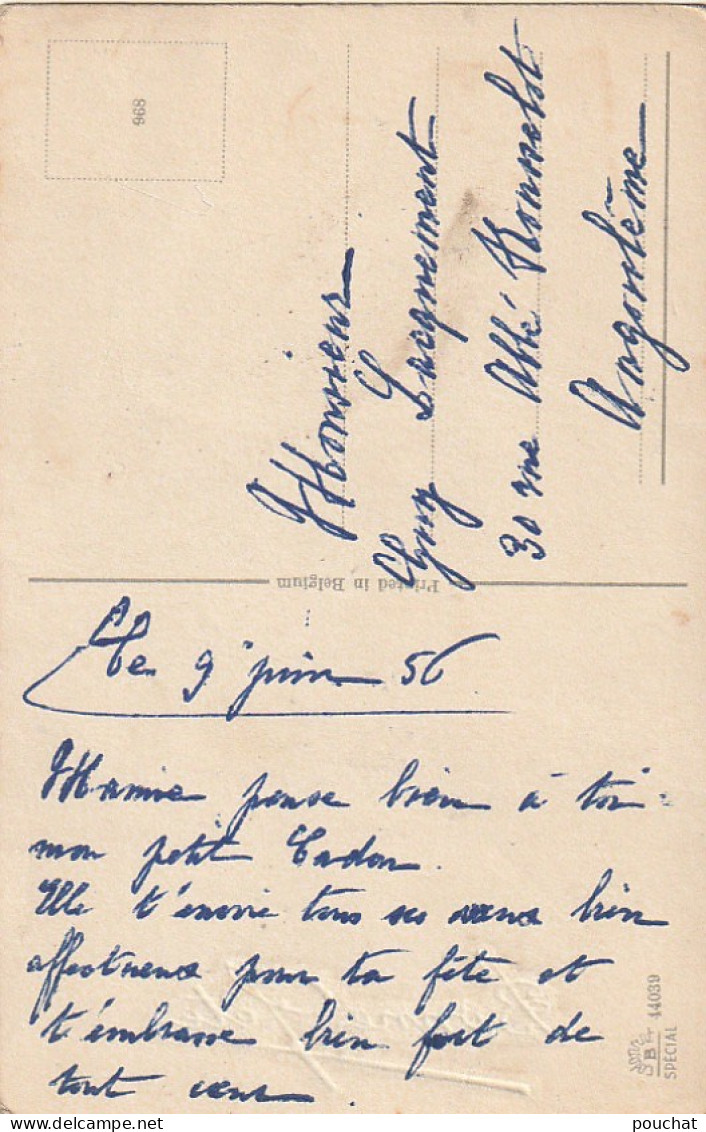 968
Monsieur
Guy Lacquement
30 rue Abbé Rousselot
Angoulême
Printed in Belgium
le 9 juin 56
Mamie pense bien à toi
mon petit Cadou.
Elle t'envoie tous ses vœux bien
affectueux pour ta fête et
t'embrasse bien fort de
tout cœur.
44039
SPÉCIAL
pouchat